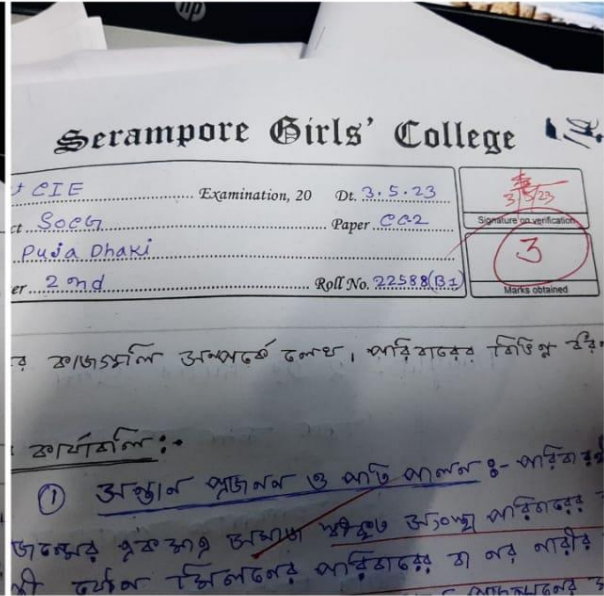 hp
Serampore Girls' College
CIE Examination, 20 Dt. 3.5.23
SOCG Paper CC2
Puja Dhaki
2nd Roll No. 22588(B1)
3/5/23
Signature on verification
3
Marks obtained
র কাজগুলি সম্পর্কে লেখ। পরিবারের বিভিন্ন
কার্যাবলি :-
① সন্তান প্রজনন ও প্রতি পালন :-
একমাত্র সমাজ স্বীকৃত সংস্থা পরিবারের
যৌন মিলনের পরিবারের বা নর নারীর